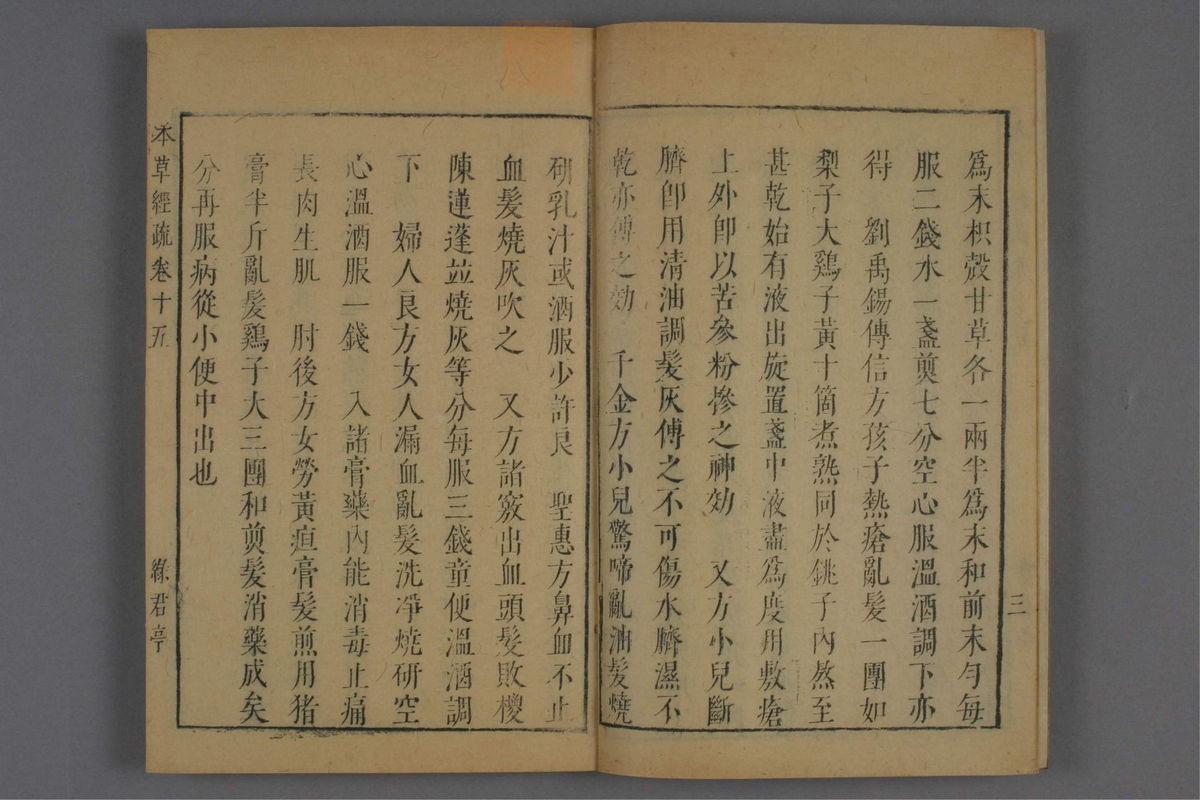 三
爲末枳殼甘草各一兩半爲末和前末勻每
服二錢水一盞煎七分空心服溫酒調下亦
得　劉禹錫傳信方孩子熱瘡亂髮一團如
梨子大鷄子黃十箇煮熟同於銚子內熬至
甚乾始有液出旋置盞中液盡爲度用敷瘡
上外卽以苦參粉摻之神効　又方小兒斷
臍卽用清油調髮灰傅之不可傷水臍濕不
乾亦傅之効　千金方小兒驚啼亂油髮燒
研乳汁或酒服少許良　聖惠方鼻血不止
血髮燒灰吹之　又方諸竅出血頭髮敗椶
陳蓮蓬竝燒灰等分每服三錢童便溫酒調
下　婦人良方女人漏血亂髮洗淨燒研空
心溫酒服一錢　入諸膏藥內能消毒止痛
長肉生肌　肘後方女勞黃疸膏髮煎用猪
膏半斤亂髮鷄子大三團和煎髮消藥成矣
分再服病從小便中出也
本草經疏卷十五
綠君亭